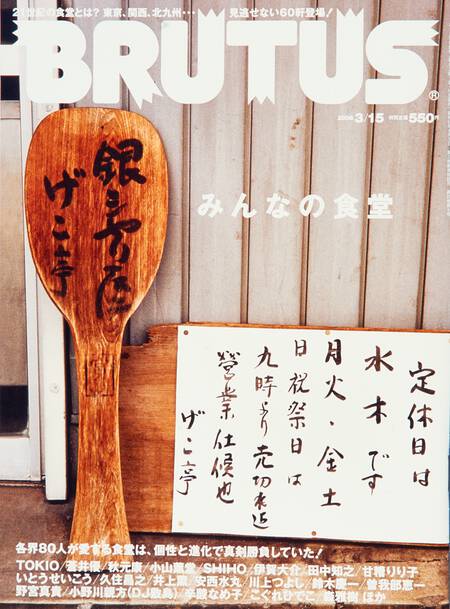 21世紀の食堂とは? 東京、関西、北九州… 見逃せない60軒登場!
BRUTUS®
2006 3/15 特別定価550円
みんなの食堂
銀シャリ屋
げこ亭
定休日は
水木です
月火・金土
日祝祭日は
九時より売切れ迄
營業仕候也
げこ亭
各界80人が愛する食堂は、個性と進化で真剣勝負していた!
TOKIO/蒼井優/秋元康/小山薫堂/SHIHO/伊賀大介/田中知之/甘糟りり子
いとうせいこう/久住昌之/井上順/安西水丸/川上つよし/鈴木慶一/曽我部恵一
野宮真貴/小野川親方(DJ敷島)/辛酸なめ子/こぐれひでこ/森雅樹 ほか